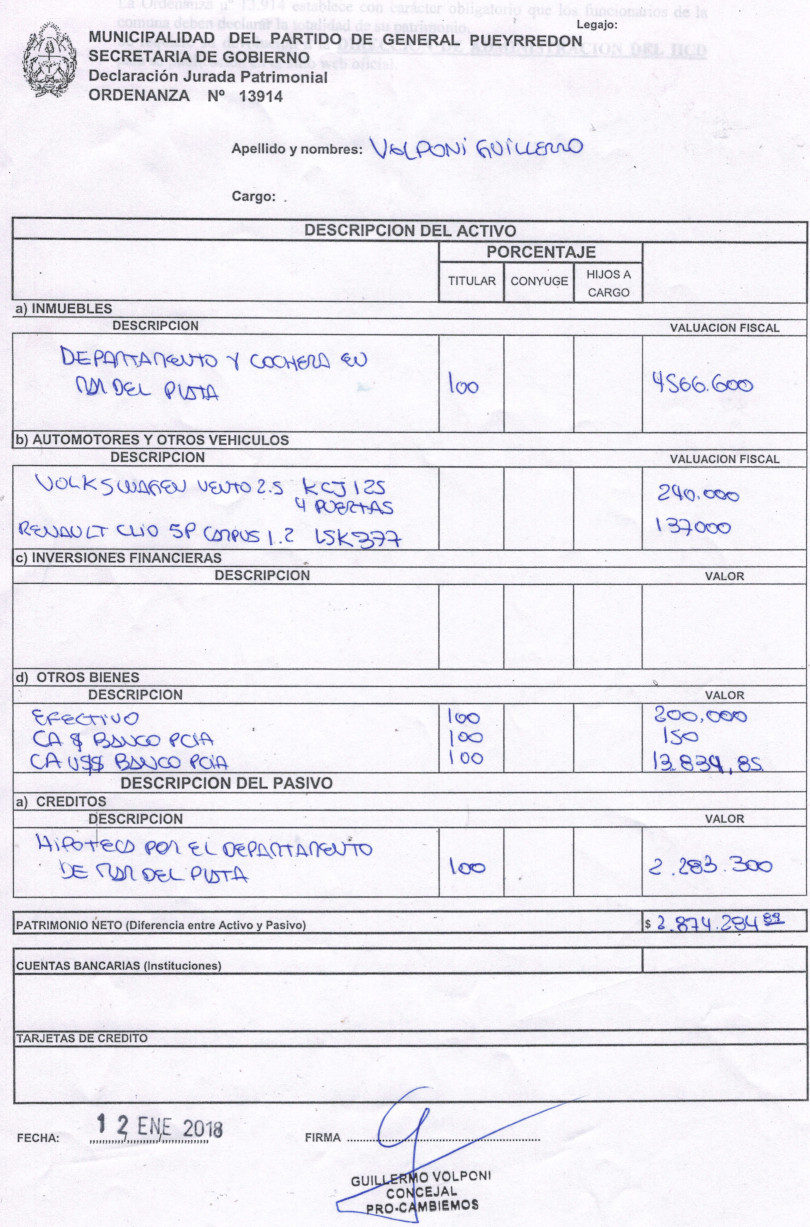 La Ordenanza nº 13.914 establece con carácter obligatorio que los funcionarios de la
comuna deben declarar la totalidad de su patrimonio.
Legajo:
MUNICIPALIDAD DEL PARTIDO DE GENERAL PUEYRREDON
SECRETARIA DE GOBIERNO
Declaración Jurada Patrimonial
ORDENANZA Nº 13914
Apellido y nombres: VOLPONI GUILLERMO
Cargo:
DESCRIPCION DEL ACTIVO
PORCENTAJE
TITULAR CONYUGE HIJOS A CARGO
a) INMUEBLES
DESCRIPCION VALUACION FISCAL
DEPARTAMENTO Y COCHERA EN
MAR DEL PLATA 100 4566.600
b) AUTOMOTORES Y OTROS VEHICULOS
DESCRIPCION VALUACION FISCAL
VOLKSWAGEN VENTO 2.5 KCJ125 240.000
4 PUERTAS
RENAULT CLIO 5P CAMPUS 1.2 LSK377 137000
c) INVERSIONES FINANCIERAS
DESCRIPCION VALOR
d) OTROS BIENES
DESCRIPCION VALOR
EFECTIVO 100 200.000
CA $ BANCO PCIA 100 150
CA U$$ BANCO PCIA 100 13.834,85
DESCRIPCION DEL PASIVO
a) CREDITOS
DESCRIPCION VALOR
HIPOTECA POR EL DEPARTAMENTO
DE MAR DEL PLATA 100 2.283.300
PATRIMONIO NETO (Diferencia entre Activo y Pasivo) $ 2.874.284
CUENTAS BANCARIAS (Instituciones)
TARJETAS DE CREDITO
FECHA: 12 ENE 2018 FIRMA
GUILLERMO VOLPONI
CONCEJAL
PRO-CAMBIEMOS